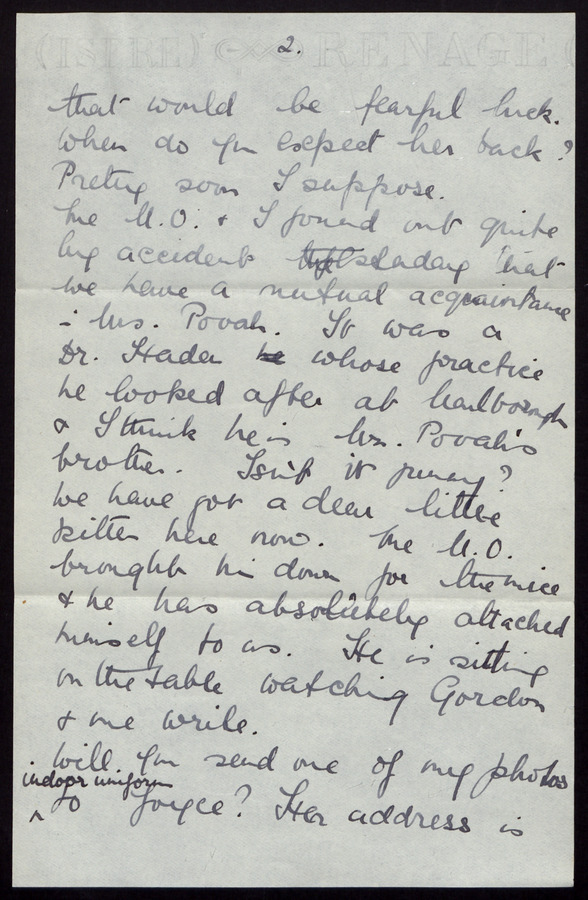 2.
(ISÈRE) RENAGE
that would be fearful luck.
When do you expect her back?
Pretty soon I suppose.
The M.O. & I found out quite
by accident yesterday that
we have a mutual acquaintance
- Mrs. Povah. It was a
Dr. Haden whose practice
he looked after at Marlborough
& I think he is Mrs. Povah's
brother. Isn't it funny?
We have got a dear little
kitten here now. The M.O.
brought him down for the mice
& he has absolutely attached
himself to us. He is sitting
on the table watching Gordon
& me write.
Will you send one of my photos
indoor uniform
^ to Joyce? Her address is